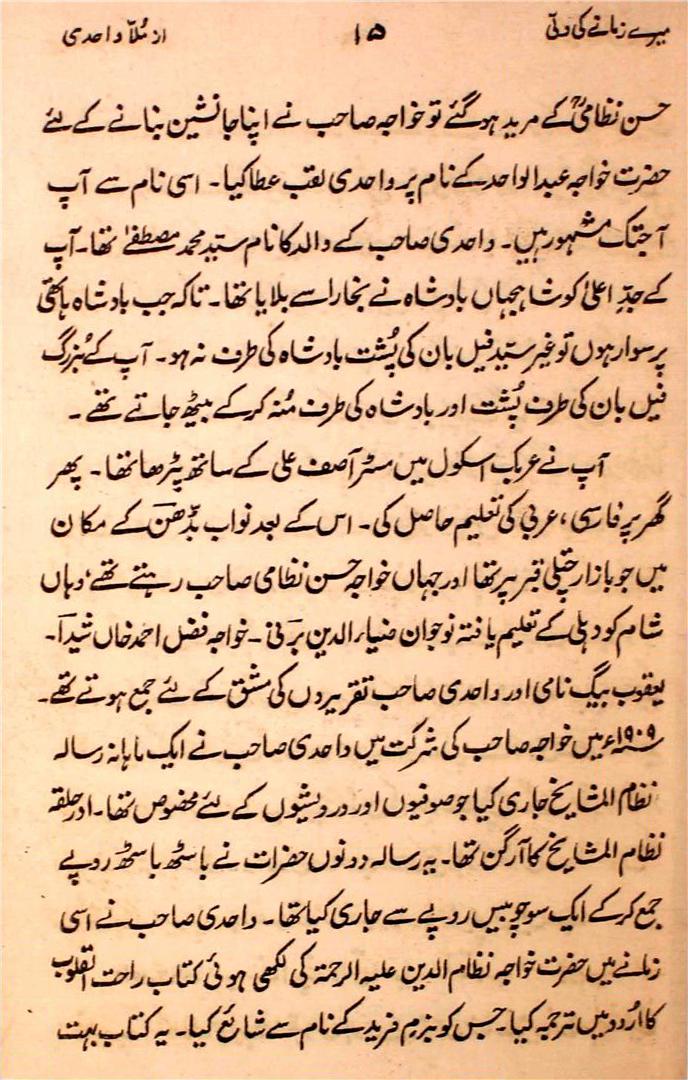 میرے زمانے کی دلّی ۱۵ از مُلّا واحدی
حسن نظامیؒ کے مرید ہوگئے تو خواجہ صاحب نے اپنا جانشین بنانے کے لئے
حضرت خواجہ عبدالواحد کے نام پر واحدی لقب عطا کیا۔ اسی نام سے آپ
آجتک مشہور ہیں۔ واحدی صاحب کے والد کا نام سیّد محمد مصطفےٰ تھا۔ آپ
کے جدِّ اعلیٰ کو شاہجہاں بادشاہ نے بخارا سے بلایا تھا۔ تاکہ جب بادشاہ ہاتھی
پر سوار ہوں تو غیر سیّد فیل بان کی پُشت بادشاہ کی طرف نہ ہو۔ آپ کے بُزرگ
فیل بان کی طرف پُشت اور بادشاہ کی طرف مُنہ کرکے بیٹھ جاتے تھے۔
آپ نے عربک اسکول میں مسٹر آصف علی کے ساتھ پڑھا تھا۔ پھر
گھر پر فارسی، عربی کی تعلیم حاصل کی۔ اس کے بعد نواب بڈّھن کے مکان
میں جو بازار چتلی قبر پر تھا اور جہاں خواجہ حسن نظامی صاحب رہتے تھے، وہاں
شام کو دہلی کے تعلیم یافتہ نوجوان ضیاء الدین برَنی۔ خواجہ فضل احمد خاں شیدؔا۔
یعقوب بیگ نامی اور واحدی صاحب تقریروں کی مشق کے لئے جمع ہوتے تھے۔
۱۹۰۹ء میں خواجہ صاحب کی شرکت میں واحدی صاحب نے ایک ماہانہ رسالہ
نظام المشایخ جاری کیا جو صوفیوں اور درویشوں کے لئے مخصوص تھا۔ اور حلقہ
نظام المشایخ کا آرگن تھا۔ یہ رسالہ دونوں حضرات نے باسٹھ باسٹھ روپے
جمع کرکے ایک سو چوبیس روپے سے جاری کیا تھا۔ واحدی صاحب نے اسی
زمانے میں حضرت خواجہ نظام الدین علیہ الرحمۃ کی لکھی ہوئی کتاب راحت القلوب
کا اُردو میں ترجمہ کیا۔ جس کو بزمِ فرید کے نام سے شائع کیا۔ یہ کتاب بہت